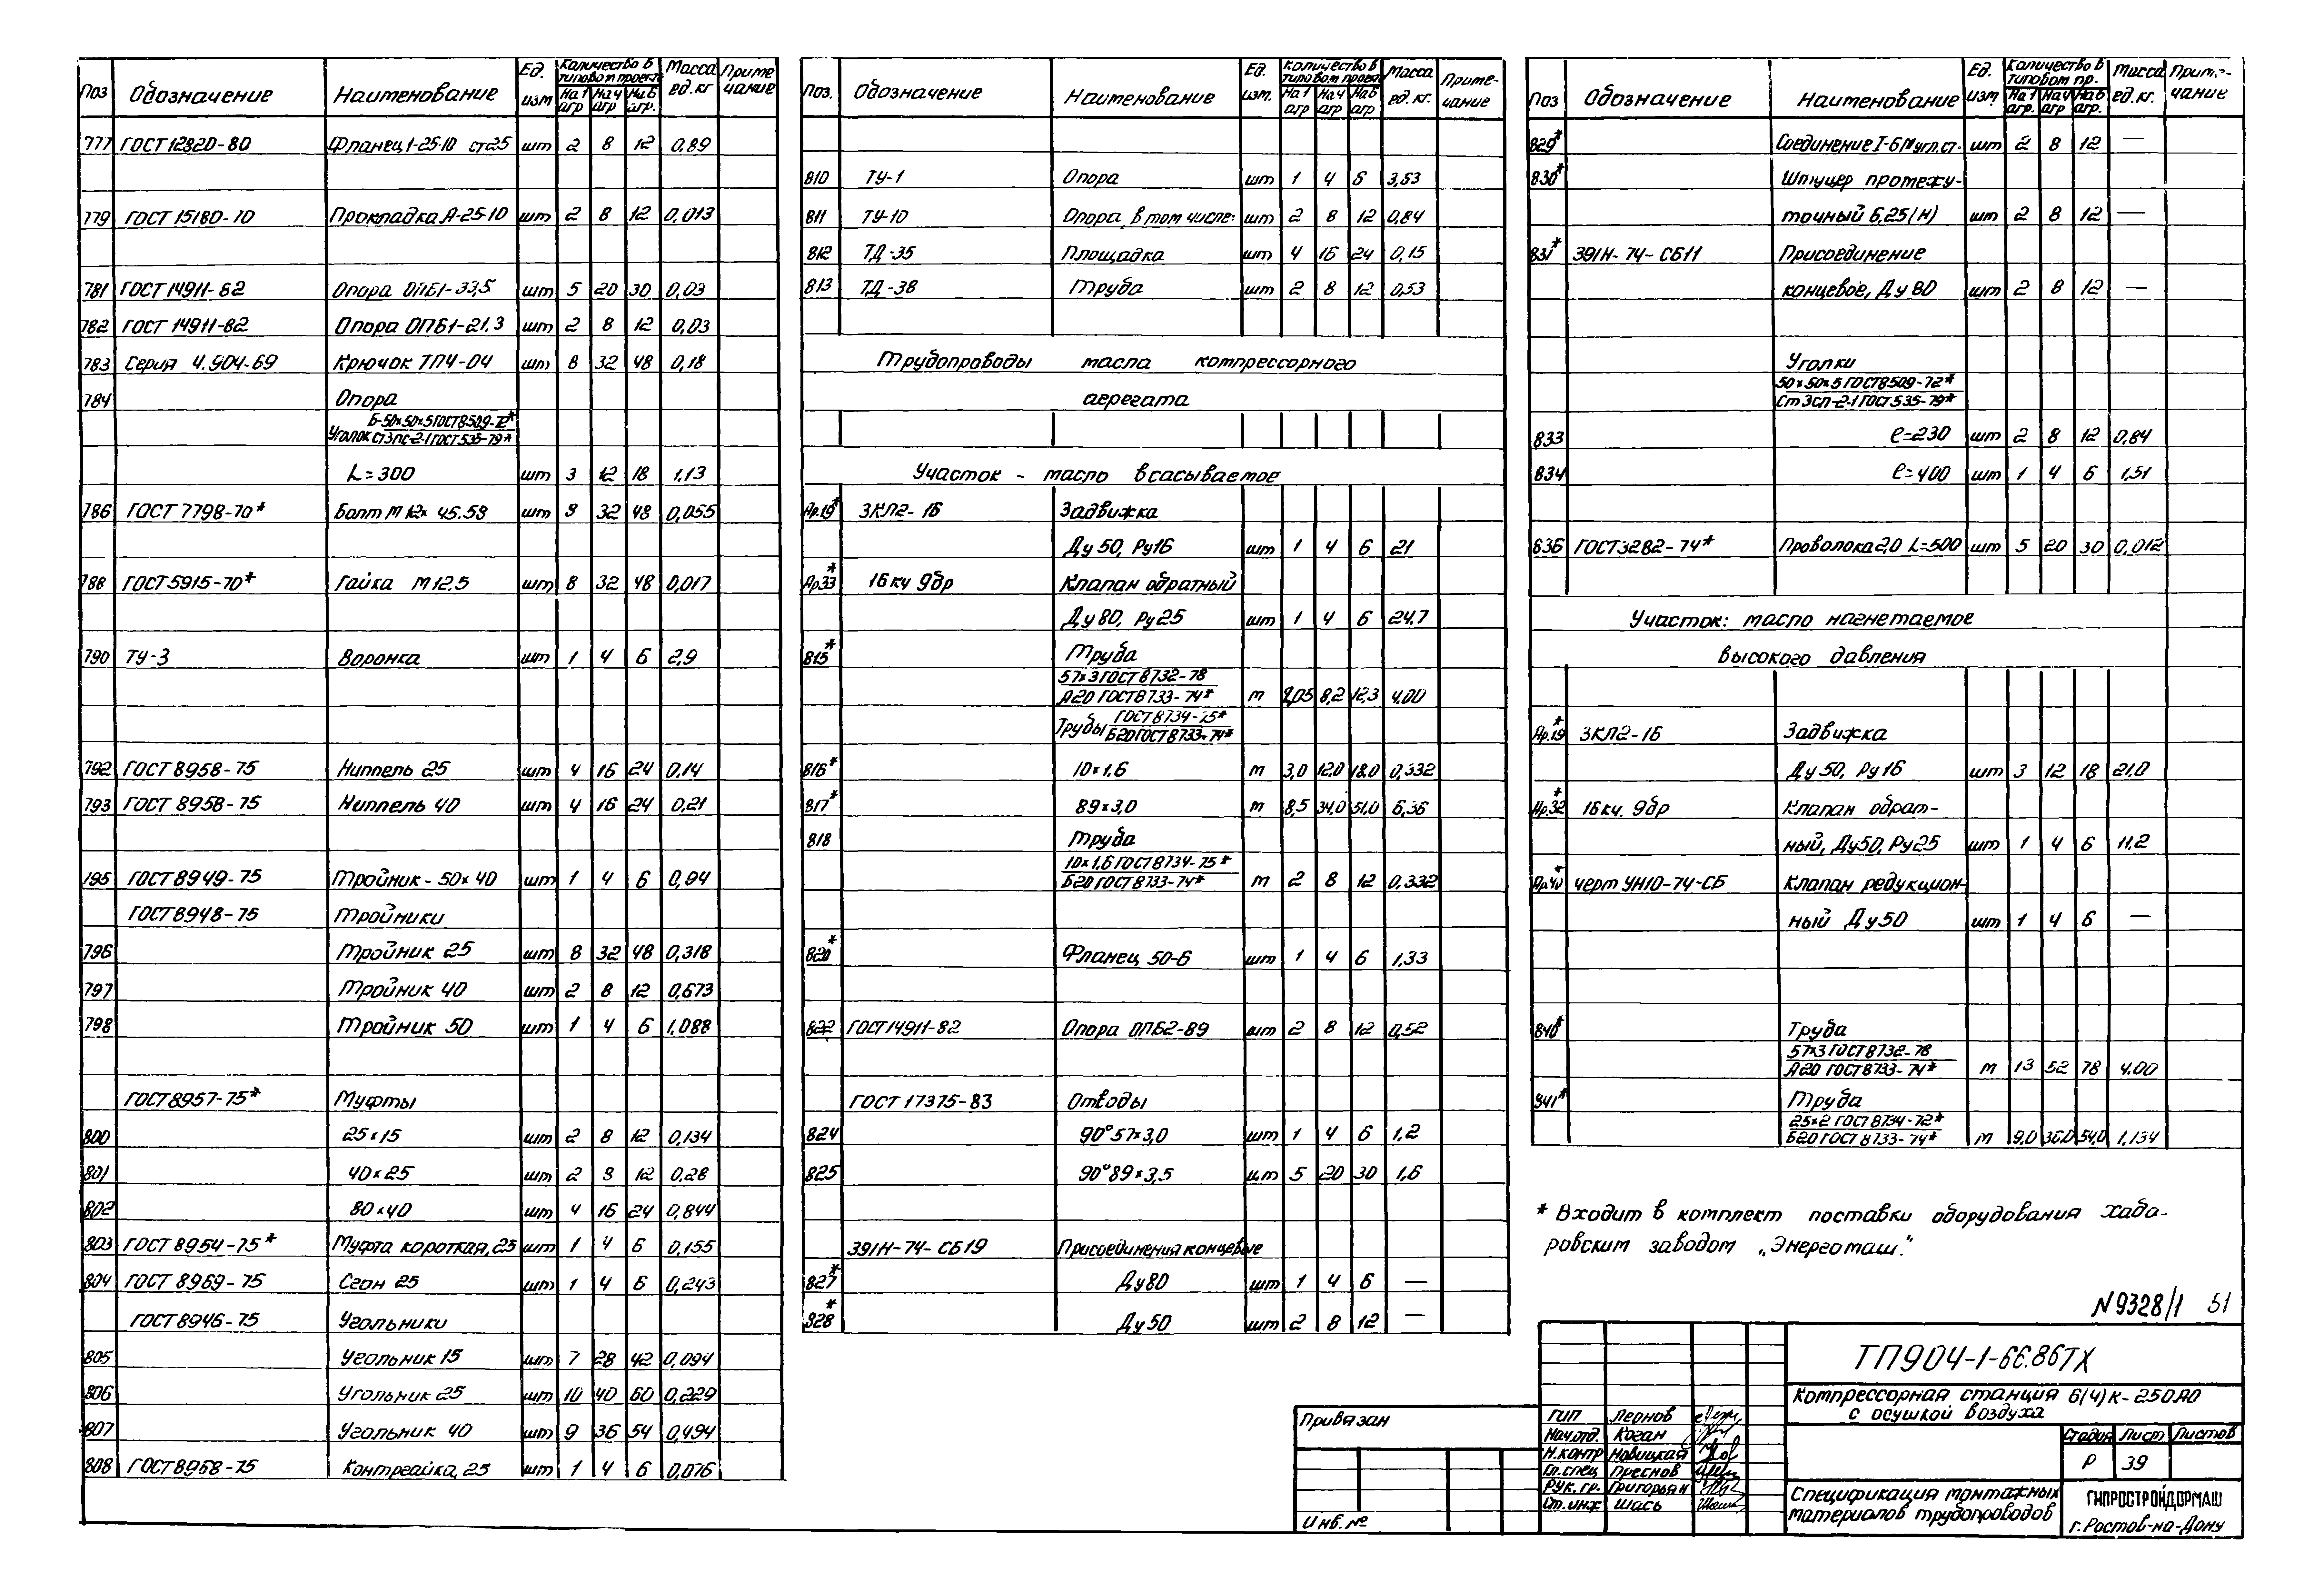 Поз Обозначение Наименование Ед. изм Количество в типовом проекте На 1 агр На 4 агр На 6 агр. Масса ед.кг Примечание
777 ГОСТ 12820-80 Фланец 1-25-10 ст25 шт 2 8 12 0,89
779 ГОСТ 15180-70 Прокладка А-25-10 шт 2 8 12 0,013
781 ГОСТ 14911-82 Опора ОПБ1-33,5 шт 5 20 30 0,03
782 ГОСТ 14911-82 Опора ОПБ1-21.3 шт 2 8 12 0,03
783 Серия 4.904-69 Крючок ТП4-04 шт 8 32 48 0,18
784 Опора
Б-50×50×5 ГОСТ 8509-72*
Уголок Ст3пс-2-1 ГОСТ 535-79*
L=300 шт 3 12 18 1,13
786 ГОСТ 7798-70* Болт М12× 45.58 шт 8 32 48 0,055
788 ГОСТ 5915-70* Гайка М12.5 шт 8 32 48 0,017
790 ТУ-3 Воронка шт 1 4 6 2,9
792 ГОСТ 8958-75 Ниппель 25 шт 4 16 24 0,14
793 ГОСТ 8958-75 Ниппель 40 шт 4 16 24 0,21
795 ГОСТ 8949-75 Тройник-50×40 шт 1 4 6 0,94
ГОСТ 8948-75 Тройники
796 Тройник 25 шт 8 32 48 0,318
797 Тройник 40 шт 2 8 12 0,673
798 Тройник 50 шт 1 4 6 1,088
ГОСТ 8957-75* Муфты
800 25×15 шт 2 8 12 0,134
801 40×25 шт 2 8 12 0,28
802 80×40 шт 4 16 24 0,844
803 ГОСТ 8954-75* Муфта короткая, 25 шт 1 4 6 0,155
804 ГОСТ 8969-75 Сгон 25 шт 1 4 6 0,243
ГОСТ 8946-75 Угольники
805 Угольник 15 шт 7 28 42 0,094
806 Угольник 25 шт 10 40 60 0,229
807 Угольник 40 шт 9 36 54 0,494
808 ГОСТ 8968-75 Контргайка, 25 шт 1 4 6 0,076
Поз. Обозначение Наименование Ед. изм. Количество в типовом проекте На 1 агр На 4 агр На 6 агр Масса ед.кг. Примечание
810 ТУ-1 Опора шт 1 4 6 3,53
811 ТУ-10 Опора, в том числе: шт 2 8 12 0,84
812 ТД-35 Площадка шт 4 16 24 0,15
813 ТД-38 Труба шт 2 8 12 0,53
Трубопроводы масла компрессорного
агрегата
Участок - масло всасываемое
Ар.19* 3КЛ2-16 Задвижка
Ду 50, Ру16 шт 1 4 6 21
Ар.33* 16кч 9бр Клапан обратный
Ду 80, Ру 25 шт 1 4 6 24.7
815* Труба
57×3 ГОСТ 8732-78
А20 ГОСТ 8733-74* м 2,05 8,2 12,3 4.00
Трубы ГОСТ 8734-75*
Б20 ГОСТ 8733-74*
816* 10×1,6 м 3,0 12.0 18.0 0,332
817* 89×3,0 м 8,5 34.0 51.0 6,36
818 Труба
10×1,6 ГОСТ 8734-75*
Б20 ГОСТ 8733-74* м 2 8 12 0,332
820* Фланец 50-6 шт 1 4 6 1,33
822 ГОСТ 14911-82 Опора ОПБ2-89 шт 2 8 12 0,52
ГОСТ 17375-83 Отводы
824 90° 57×3,0 шт 1 4 6 1,2
825 90° 89×3,5 шт 5 20 30 1,6
391Н-74-СБ19 Присоединения концевые
827* Ду80 шт 1 4 6 —
828* Ду 50 шт 2 8 12 —
Поз Обозначение Наименование Ед. изм. Количество в типовом пр. На 1 агр. На 4 агр На 6 агр. Масса ед.кг. Примечание
829* Соединение I-6М угл.ст. шт 2 8 12 —
830* Штуцер протежу-
точный 6,25(Н) шт 2 8 12 —
831* 391Н-74-СБ11 Присоединение
концевое, Ду 80 шт 2 8 12 —
Уголки
50×50×5 ГОСТ 8509-72*
Ст3сп-2-1 ГОСТ 535-79*
833 ℓ=230 шт 2 8 12 0,84
834 ℓ=400 шт 1 4 6 1,51
836 ГОСТ 3282-74* Проволока 2,0 L=500 шт 5 20 30 0,012
Участок: масло нагнетаемое
высокого давления
Ар.19* 3КЛ2-16 Задвижка
Ду 50, Ру 16 шт 3 12 18 21.0
Ар.32* 16кч. 9бр Клапан обрат-
ный, Ду50, Ру25 шт 1 4 6 11,2
Ар.40* черт УН10-74-СБ Клапан редукцион-
ный Ду 50 шт 1 4 6 —
840* Труба
57×3 ГОСТ 8732-78
А20 ГОСТ 8733-74* м 13 52 78 4.00
841* Труба
25×2 ГОСТ 8734-72*
Б20 ГОСТ 8733-74* м 9,0 36.0 54,0 1,134
* Входит в комплект поставки оборудования хаба-
ровским заводом „Энергомаш."
N9328/1 51
ТП904-1-66.86ТХ
Компрессорная станция 6(4)К-250А0
с осушкой воздуха
Привязан
Инв.№
ГИП Леонов
Нач.отд. Коган
Н.контр Новицкая
Гл.спец Преснов
Рук.гр. Григорьян
Ст.инж Шась
Стадия Лист Листов
Р 39
Спецификация монтажных
материалов трубопроводов
ГИПРОСТРОЙДОРМАШ
г.Ростов-на-Дону